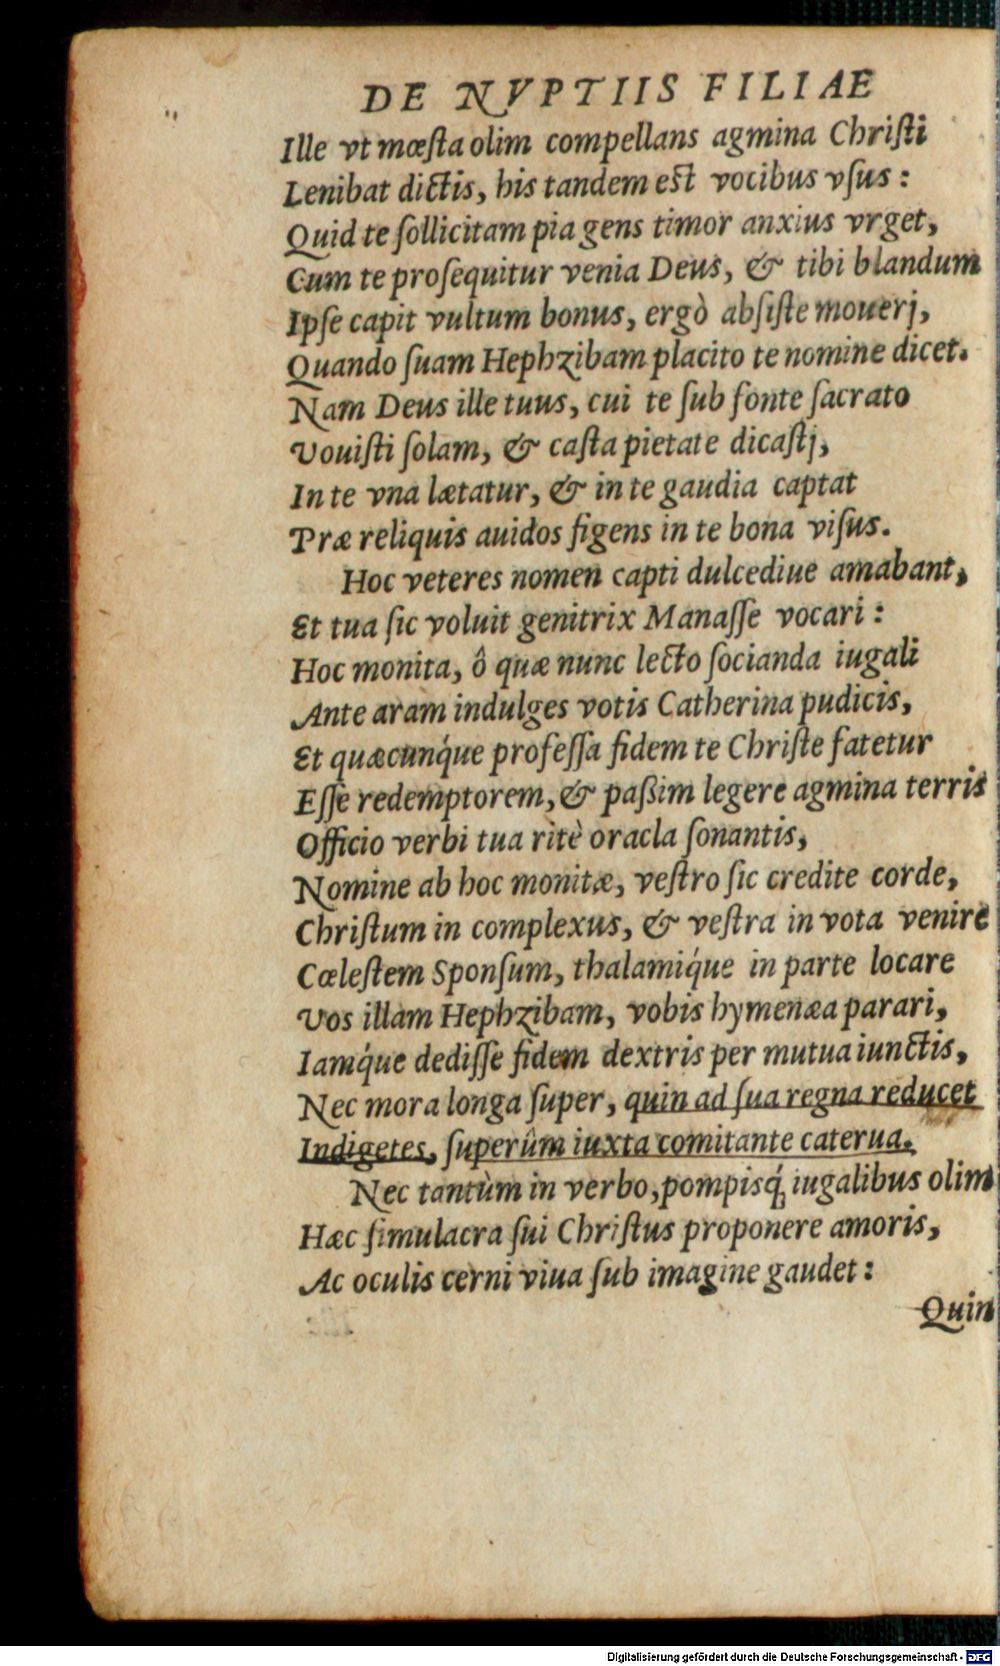 DE NVPTIIS FILIAE
Ille vt mœſta olim compellans agmina Chriſti
Lenibat dictis, his tandem eſt vocibus vſus:
Quid te ſollicitam pia gens timor anxius vrget,
Cum te proſequitur venia Deus, & tibi blandum
Ipſe capit vultum bonus, ergò abſiſte mouerj,
Quando ſuam Hephzibam placito te nomine dicet.
Nam Deus ille tuus, cui te ſub fonte ſacrato
Vouiſti ſolam, & caſta pietate dicaſtj,
In te vna lætatur, & in te gaudia captat
Præ reliquis auidos figens in te bona viſus.
Hoc veteres nomen capti dulcediue amabant,
Et tua ſic voluit genitrix Manaſſe vocari:
Hoc monita, ô quæ nunc lecto ſocianda iugali
Ante aram indulges votis Catherina pudicis,
Et quæcunq́ue profeſſa fidem te Chriſte fatetur
Eſſe redemptorem, & paßim legere agmina terris
Officio verbi tua ritè oracla ſonantis,
Nomine ab hoc monitæ, veſtro ſic credite corde,
Chriſtum in complexus, & veſtra in vota venire
Cœleſtem Sponſum, thalamiq́ue in parte locare
Vos illam Hephzibam, vobis hymenæa parari,
Iamq́ue dediſſe fidem dextris per mutua iunctis,
Nec mora longa ſuper, quin ad ſua regna reducet
Indigetes, ſuperûm iuxta comitante caterua.
Nec tantùm in verbo, pompisq́; iugalibus olim
Hæc ſimulacra ſui Chriſtus proponere amoris,
Ac oculis cerni viua ſub imagine gaudet:
Quin
Digitalisierung gefördert durch die Deutsche Forschungsgemeinschaft - DFG